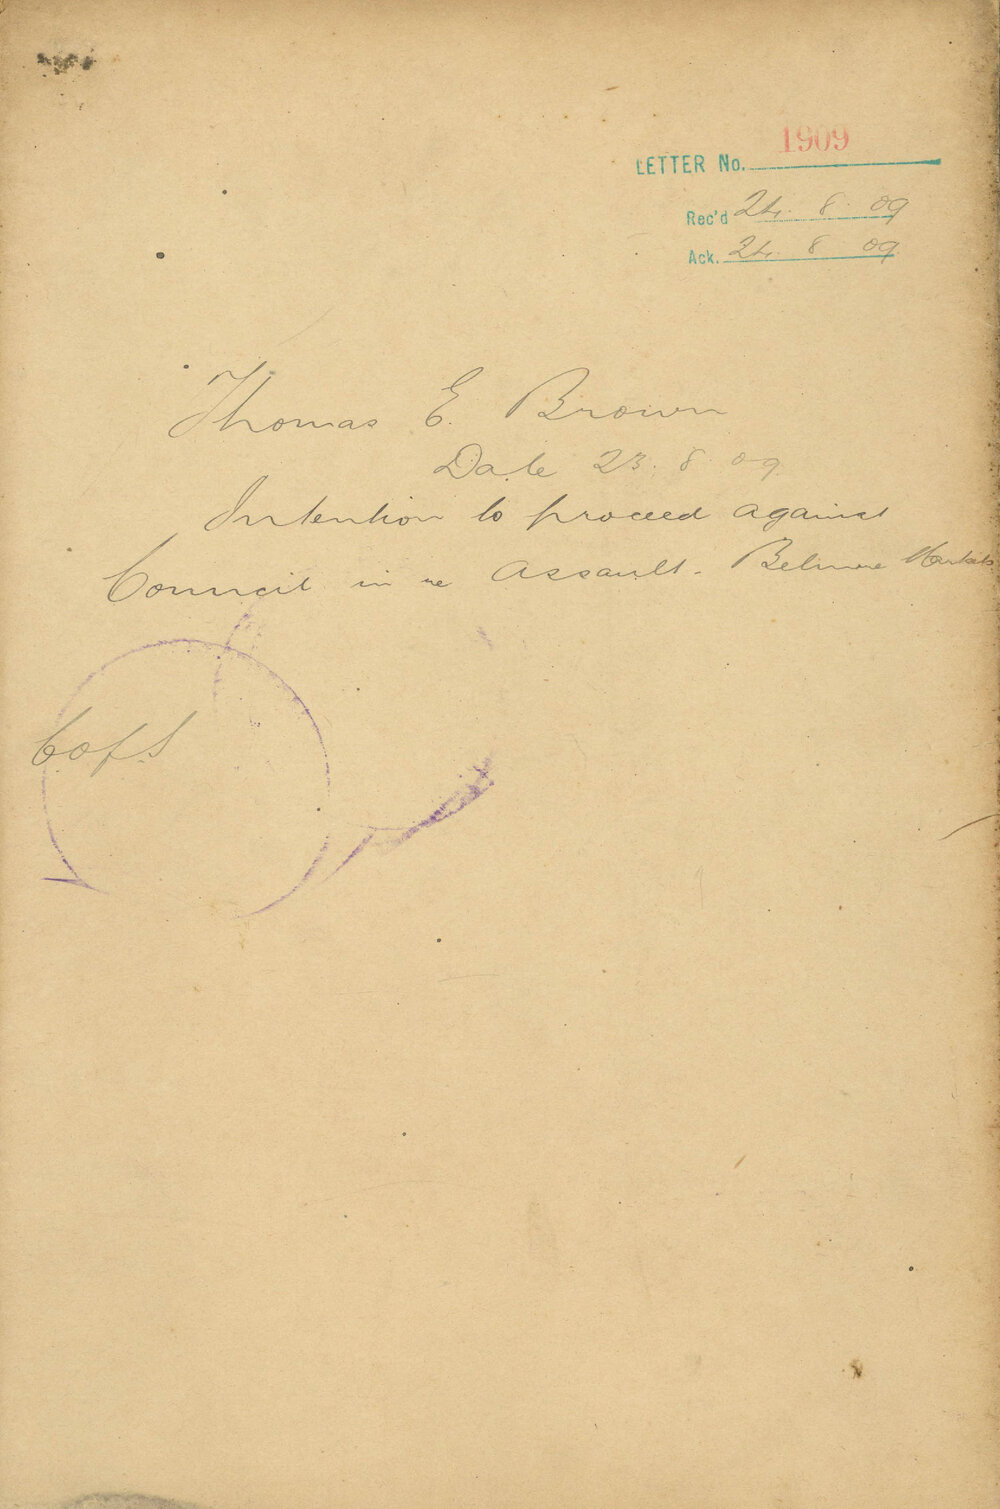 1909
LETTER No.
Rec'd 24. 8. 09
Ack. 24. 8 09
Thomas E. Brown
Date 23. 8. 09
Intention to proceed against
Council in re Assault. Belmore Markets
C of S